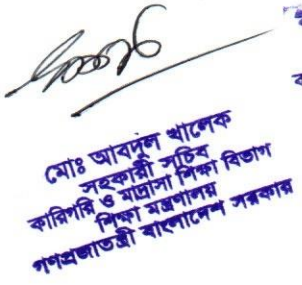 মোঃ আবদুল খালেক
সহকারী সচিব
কারিগরি ও মাদ্রাসা শিক্ষা বিভাগ
শিক্ষা মন্ত্রণালয়
গণপ্রজাতন্ত্রী বাংলাদেশ সরকার